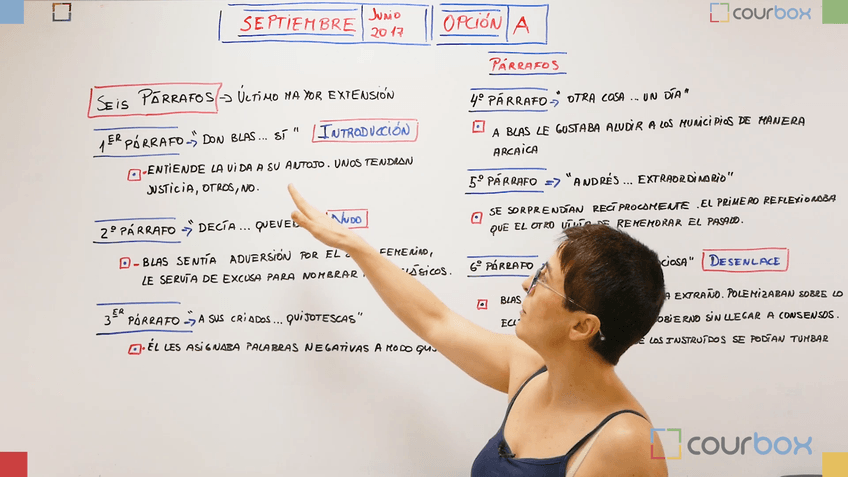 courbox
SEPTIEMBRE JUNIO 2017 OPCIÓN A
SEIS PÁRRAFOS → ÚLTIMO MAYOR EXTENSIÓN
1ER PÁRRAFO → "DON BLAS... SÍ" INTRODUCCIÓN
- ENTIENDE LA VIDA A SU ANTOJO. UNOS TENDRÁN
JUSTICIA, OTROS, NO.
2º PÁRRAFO → "DECÍA... NUDO
- BLAS SENTÍA ADVERSIÓN POR EL FEMENINO,
LE SERVÍA DE EXCUSA PARA NOMBRAR
3ER PÁRRAFO → "A SUS CRIADOS... QUIJOTESCAS"
- ÉL LES ASIGNABA PALABRAS NEGATIVAS A MODO
PÁRRAFOS
4º PÁRRAFO → "OTRA COSA... UN DÍA"
A BLAS LE GUSTABA ALUDIR A LOS MUNICIPIOS DE MANERA
ARCAICA
5º PÁRRAFO => "ANDRÉS... EXTRAORDINARIO"
SE SORPRENDÍAN RECÍPROCAMENTE. EL PRIMERO REFLEXIONABA
QUE EL OTRO VIVÍA DE REMEMORAR EL PASADO.
6º PÁRRAFO DESENLACE
EXTRAÑO. POLEMIZABAN SOBRE LO
SIN LLEGAR A CONSENSOS.
LOS INSTRUÍDOS SE PODÍAN TUMBAR
courbox